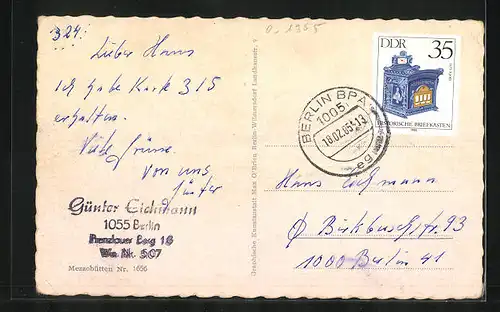 324.
0.1355
Lieber Hans
ich habe Karte 315
erhalten.
Viele Grüße
von uns
Günter
Günter Eichmann
1055 Berlin
Prenzlauer Berg 18
Wm Nr. 507
Messebütten Nr. 1656
Graphische Kunstanstalt Max O'Brien Berlin-Wilmersdorf Landhausstr. 9
BERLIN BPA
1005
18.02.85-13
eg
DDR
35
HISTORISCHE BRIEFKÄSTEN
1985
Hans
Birkbuschstr. 93
1000 Berlin 41